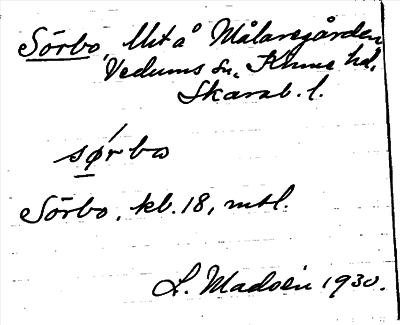 Sörbo, lht å Målaregården,
Vedums sn. Kinne hd.
Skarab. l.
sǿrbo
Sörbo, kb. 18, mtl.
L. Madsén 1930.